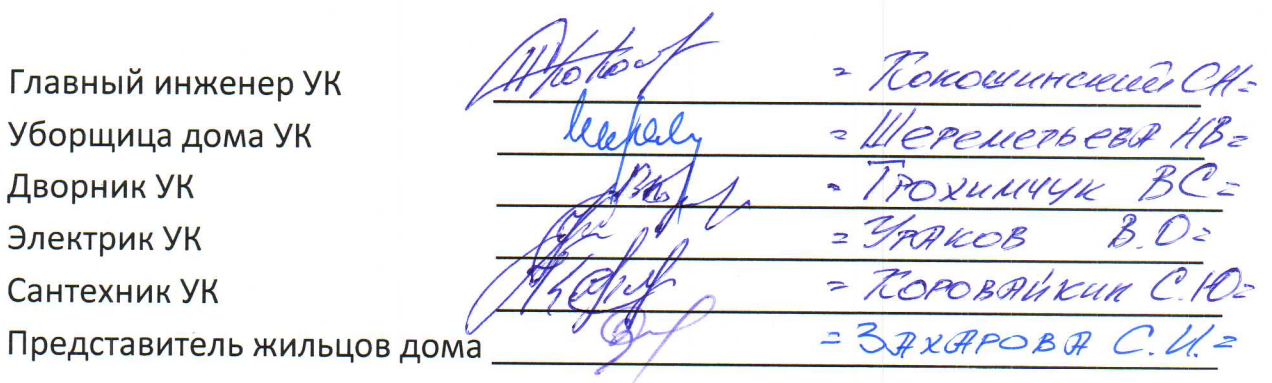 Главный инженер УК = Кокошинский СН=
Уборщица дома УК = Шереметьева НВ=
Дворник УК - Трохимчук ВС=
Электрик УК = Ураков В.О=
Сантехник УК = Коровайкин С.Ю=
Представитель жильцов дома = Захарова С.И.=